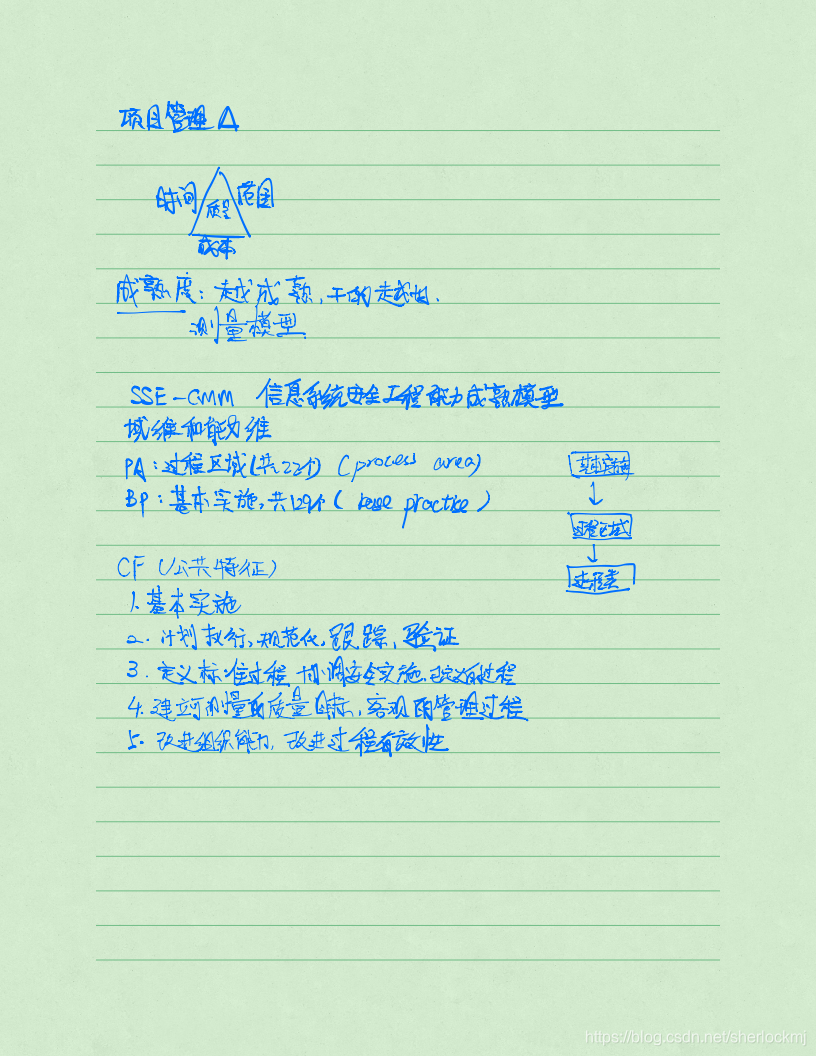 项目管理△
时间 范围
质量
成本
成熟度：越成熟，干的越好.
测量模型
SSE-CMM 信息系统安全工程能力成熟模型
域维和能力维
PA：过程区域(共22个) (process area)
BP：基本实施，共129个 (base practice)
基本实施
↓
过程区域
↓
过程类
CF (公共特征)
1. 基本实施
2. 计划执行，规范化，跟踪，验证
3. 定义标准过程 协调安全实施，已定义的过程
4. 建立可测量的质量目标，客观的管理过程
5. 改进组织能力，改进过程有效性
https://blog.csdn.net/sherlockmj